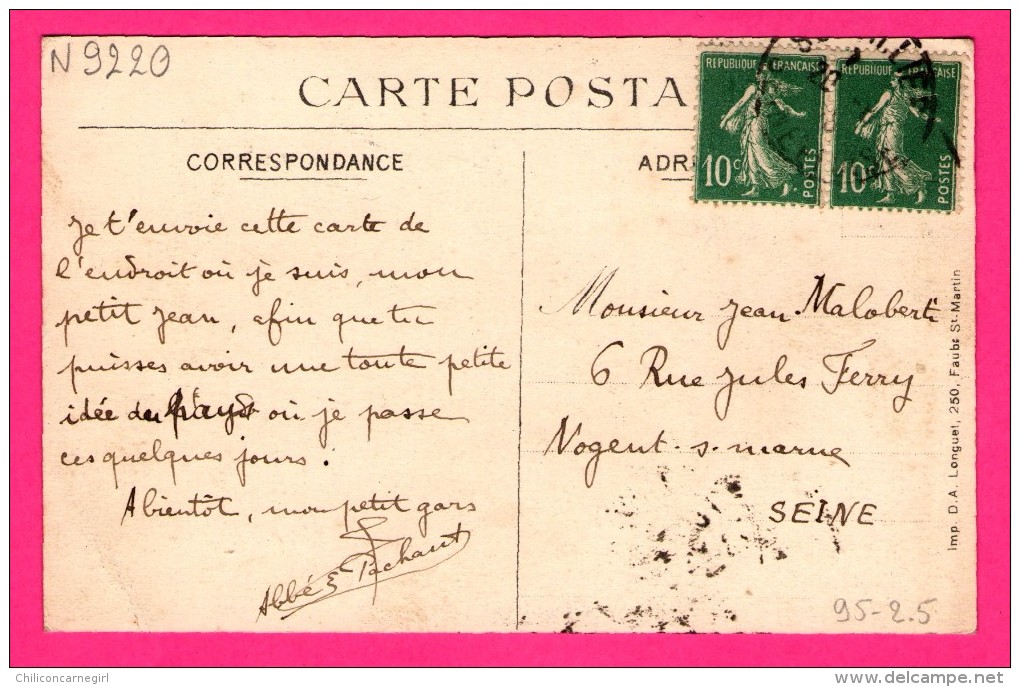 N 9220
CARTE POSTA
REPUBLIQUE FRANÇAISE
10c POSTES
REPUBLIQUE FRANÇAISE
10c POSTES
CORRESPONDANCE
ADR
Je t'envoie cette carte de
l'endroit où je suis, mon
petit Jean, afin que tu
puisses avoir une toute petite
idée du pays où je passe
ces quelques jours.
A bientôt, mon petit gars
Abbé
Monsieur Jean Maloberti
6 Rue Jules Ferry
Nogent-s-marne
SEINE
Imp. D.A. Longuet, 250, Faubg St-Martin
95-2.5
Chiliconcarnegirl
www.delcampe.net